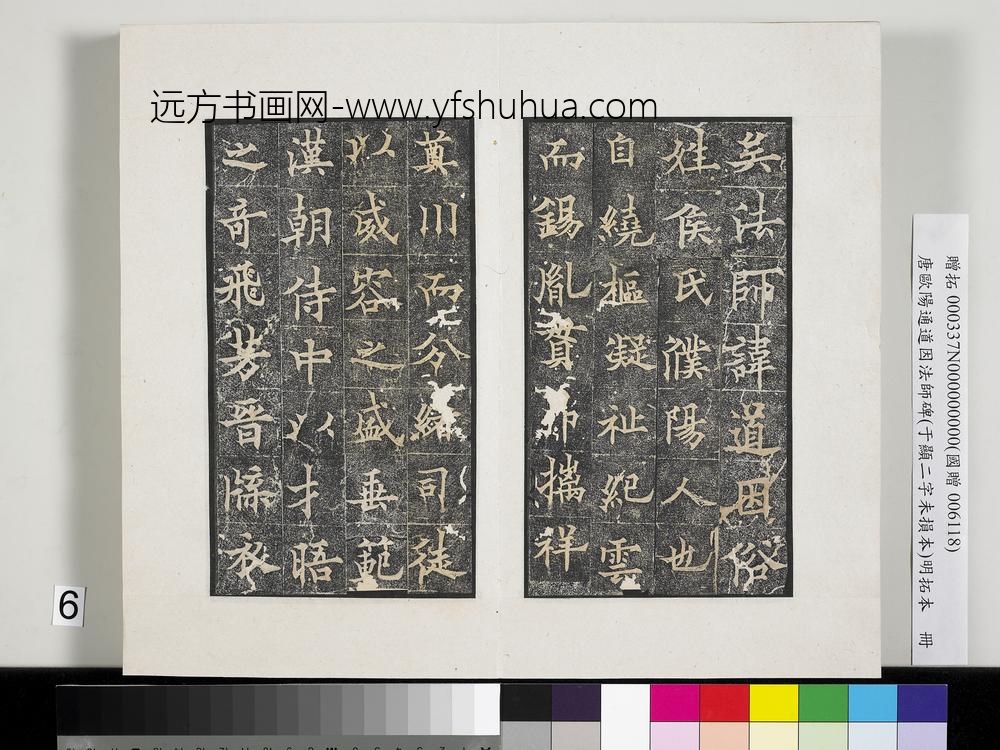 远方书画网-www.yfshuhua.com
矣法師諱道因俗
姓侯氏濮陽人也
自繞樞凝祉紀雲
而錫胤賛帝攜祥
奠川而分緒司徒
以威容之盛垂範
漢朝侍中以才晤
之奇飛芳晉牒衣
贈拓 000337N000000000(國贈 006118)
唐歐陽通道因法師碑(于顯二字未損本)明拓本 冊
6